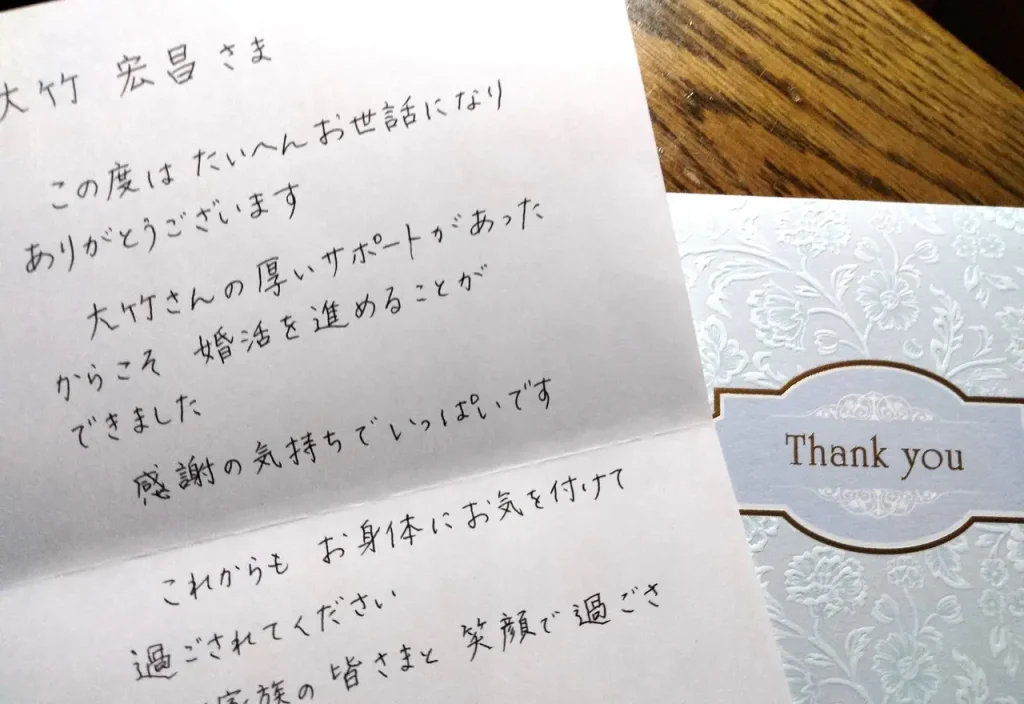 大竹 宏昌さま
この度は たいへん お世話になり
ありがとうございます
大竹さんの厚いサポートがあった
からこそ 婚活を進めることが
できました
感謝の気持ちでいっぱいです
これからも お身体にお気を付けて
過ごされてください
家族の皆さまと 笑顔で過ごさ
Thank you